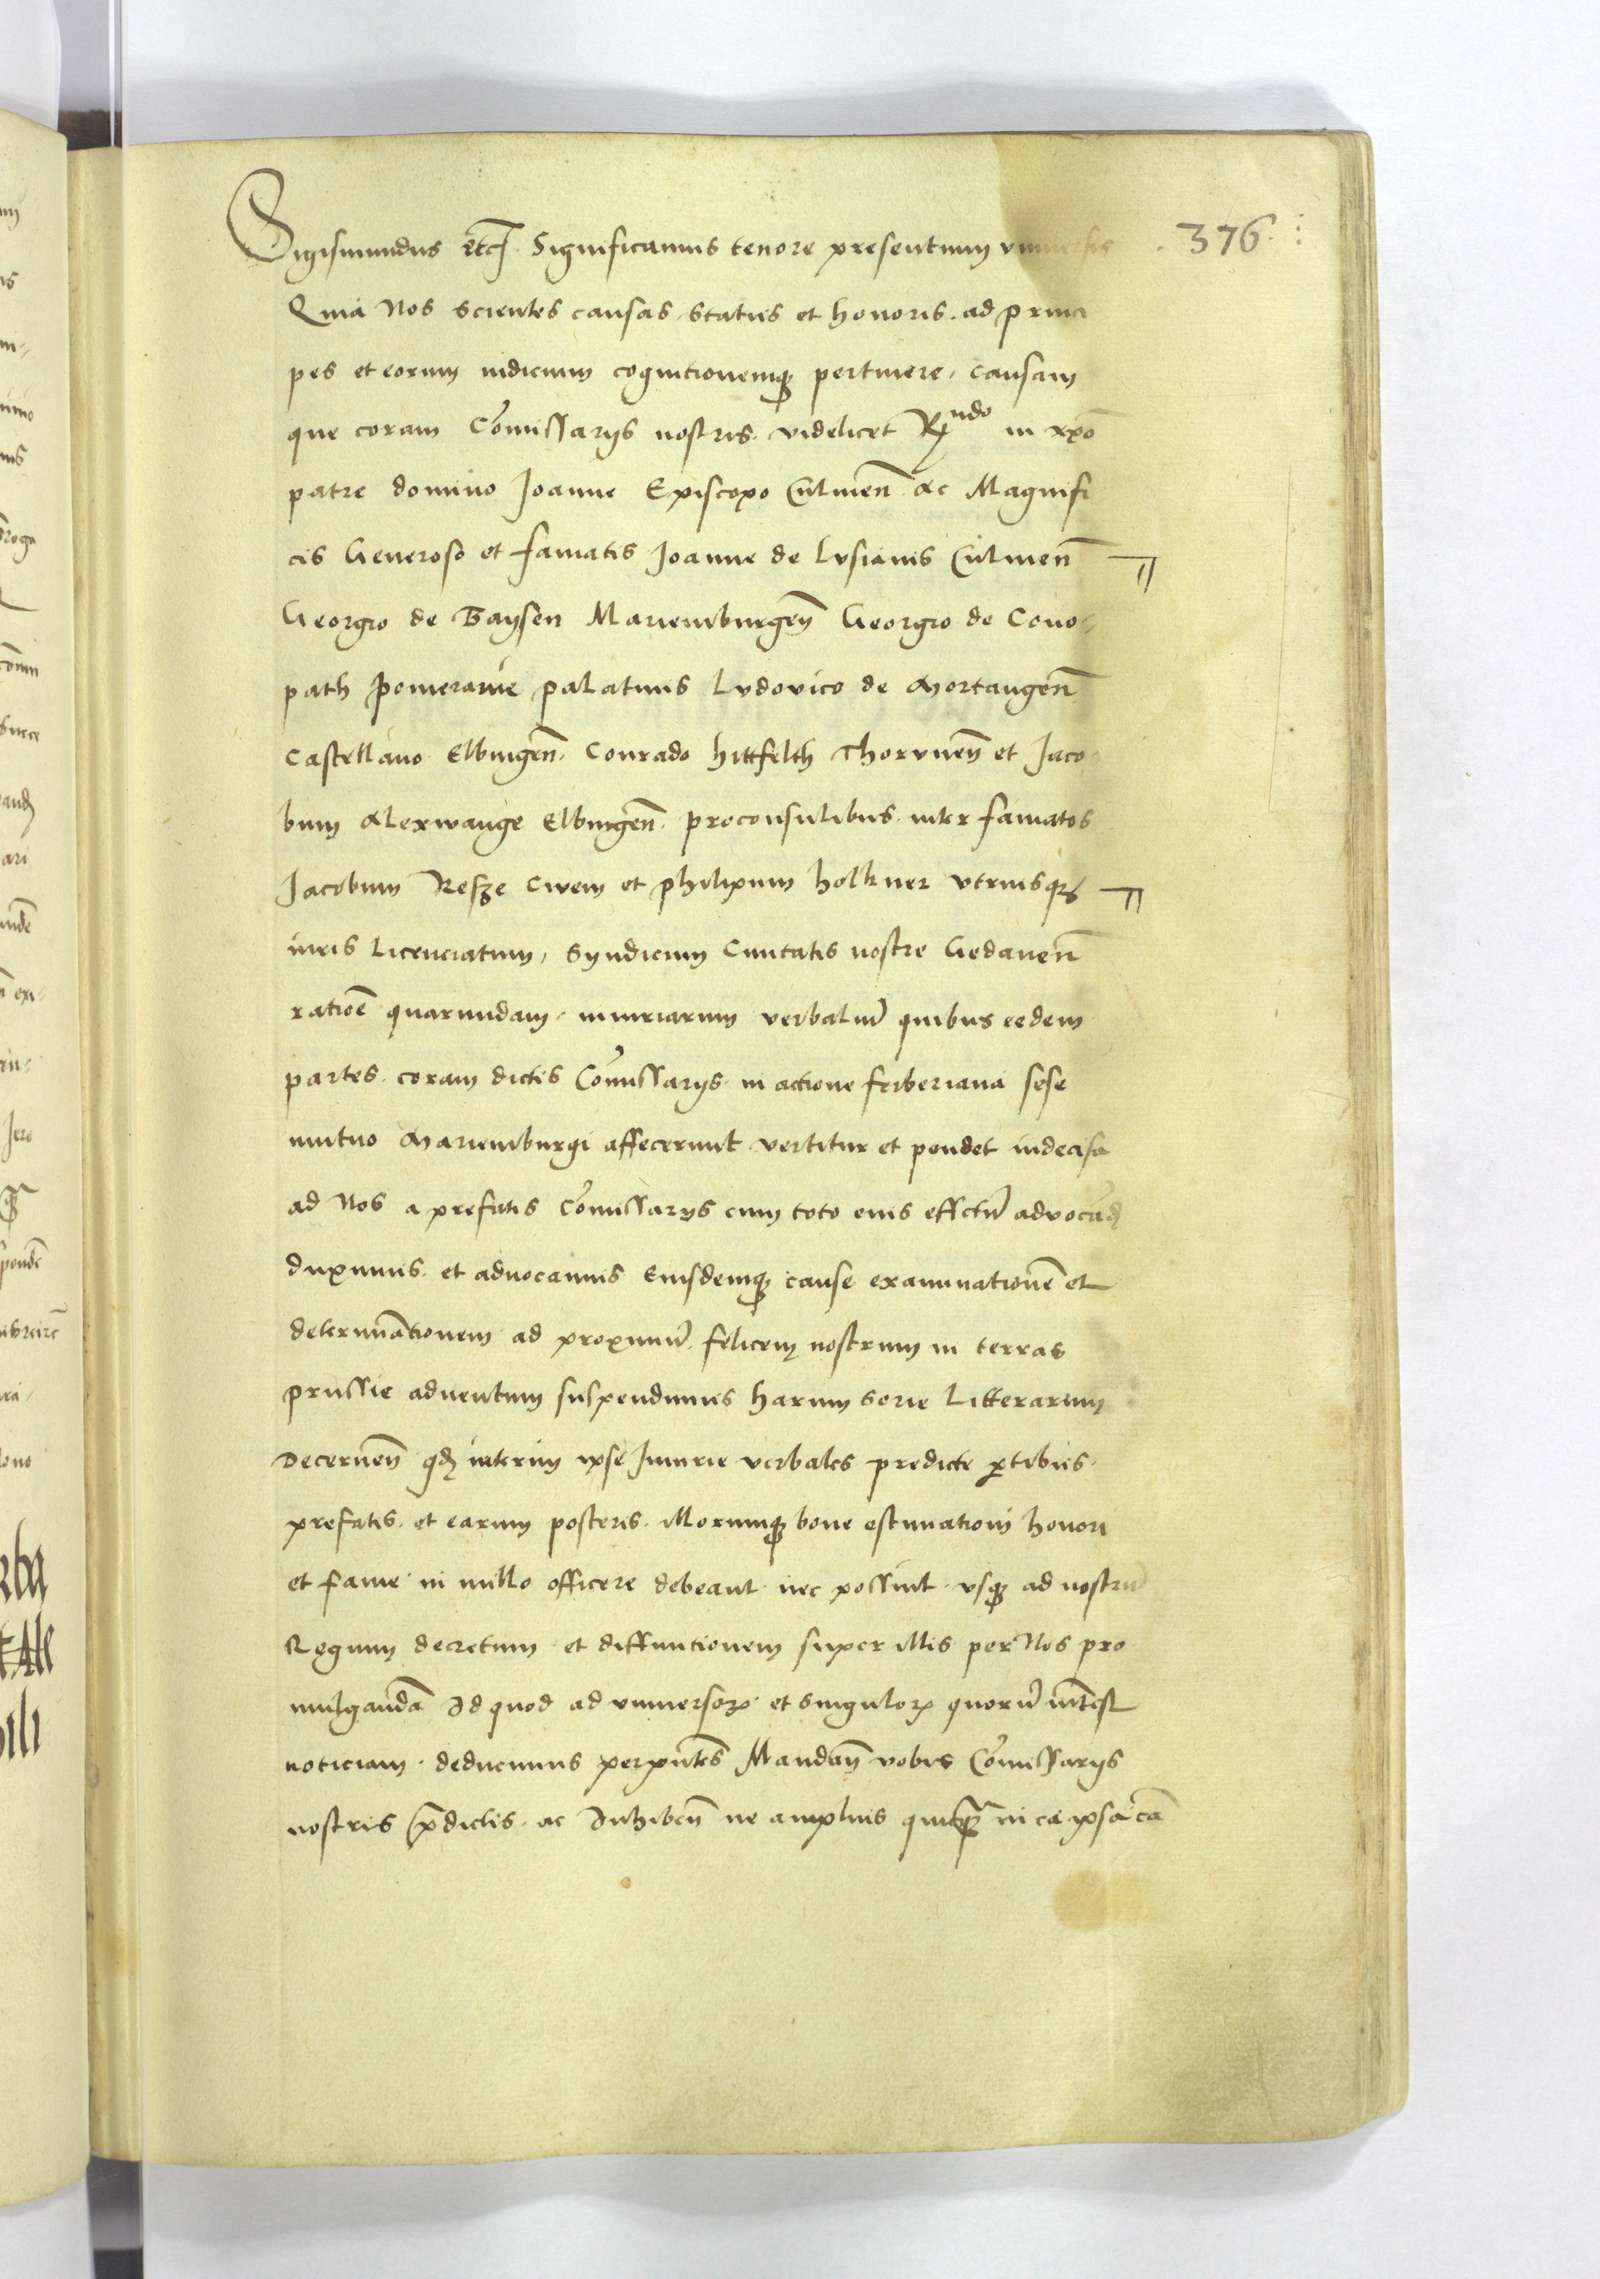 376
Sigismundus etc. Significamus tenore presentium universis
Quia Nos scientes causas status et honoris ad princi
pes et eorum iudicium cognitionemq3 pertinere, causam
que coram Comissariis nostris videlicet Rndo in xpo
patre domino Joanne Episcopo Culmen ac Magnifi
cis Generoso et famatis Joanne de Lusianis Culmen
Georgio de Baysen Mariemburgen Georgio de Cono-
path Pomeranie palatinis Ludovico de Mortangen
Castellano Elbingen. Conrado hittfelth Thorunen et Jaco
bum Alexwange Elbingen. proconsulibus inter famatos
Jacobum Resze Civem et Philipum holkner utriusq3
iuris Licenciatum, Syndicum Civitatis nostre Gedanen
ratione quarundam iniuriarum verbaliu quibus eedem
partes coram dictis Comissariis in actione ferberiana sese
mutuo Mariemburgi affecerunt vertitur et pendet indecisa
ad Nos a prefatis Comissariis cum toto eius effctu advocand
duximus et advocamus Eiusdemq3 cause examinationem et
determinationem ad proximu felicem nostrum in terras
prussie adventum suspendimus harum serie Litterarum
Decernen qd interim ipse Iniurie verbales predicte ptibus
prefatis et earum posteris illorumq3 bone estimationi honori
et fame in nullo officere debeant nec possint usq3 ad nostru
Regium decretum et diffinitionem super illis per Nos pro
mulgandam Id quod ad universor et singulor quoru intest
noticiam deducimus per pntes Mandan vobis Comissariis
nostris pdictis ac Inhiben ne amplius quicq in ea ipsa ca